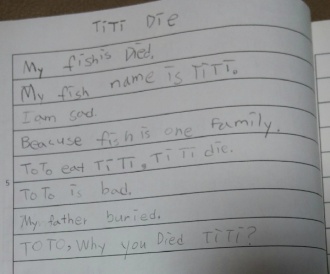 TiTi Die
My fishis Died.
My fish name is TiTi.
I am sad.
Beacuse fish is one Family.
ToTo eat TiTi, TiTi die.
5
ToTo is bad,
My father buried.
TOTO, Why you Died TiTi?